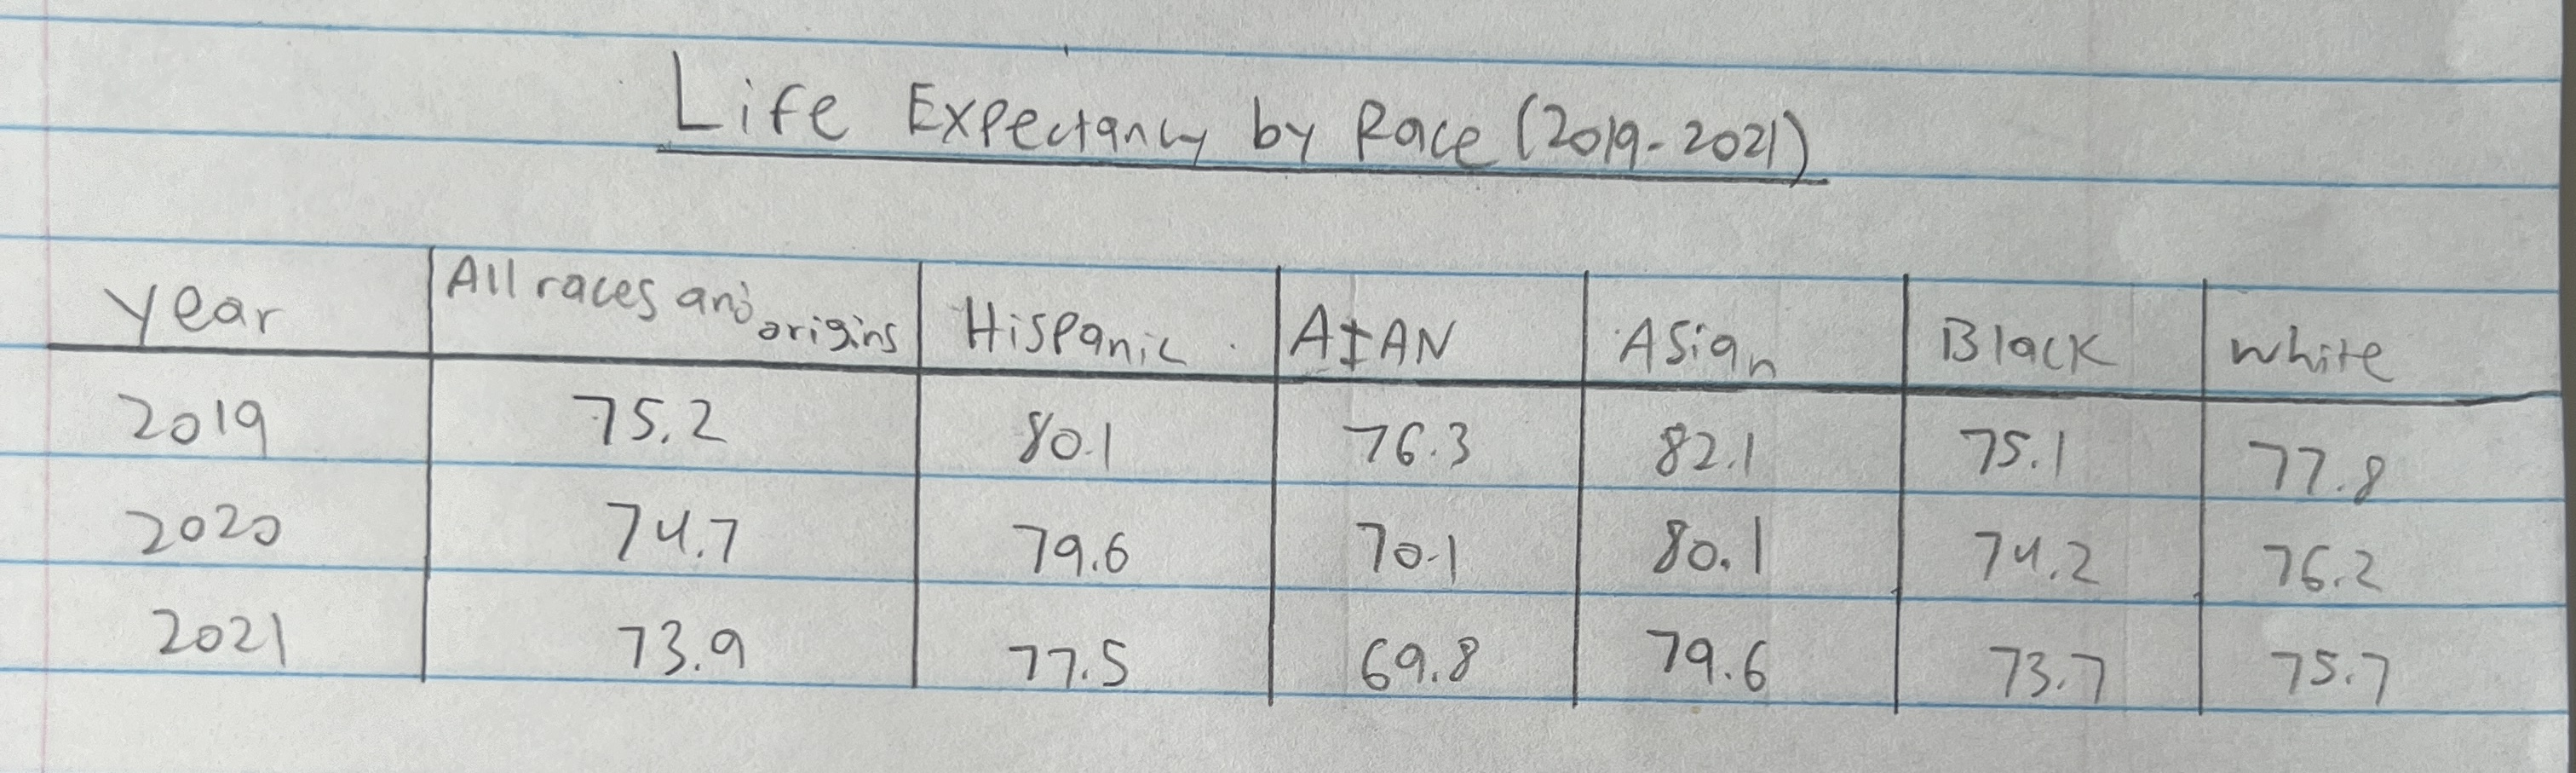 Life Expectancy by Race (2019-2021)
Year All races and origins Hispanic AIAN Asian Black white
2019 75.2 80.1 76.3 82.1 75.1 77.8
2020 74.7 79.6 70.1 80.1 74.2 76.2
2021 73.9 77.5 69.8 79.6 73.7 75.7